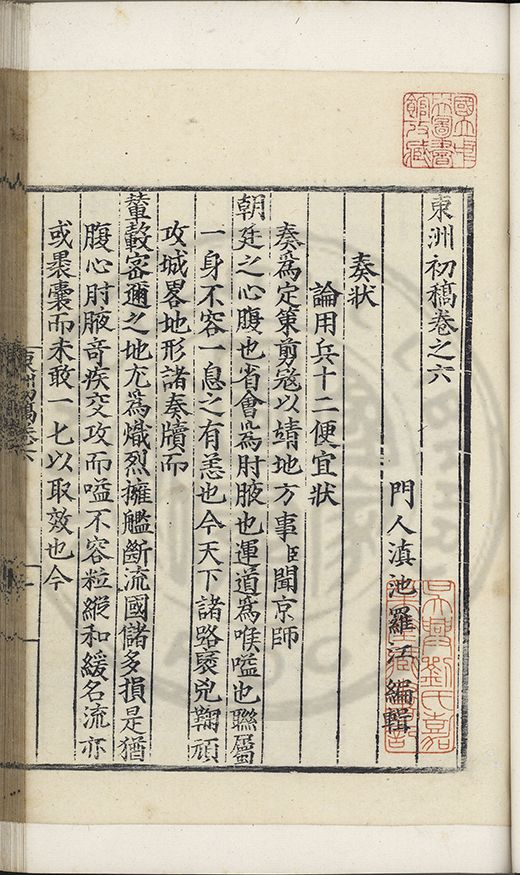 國立中
央圖書
館收藏
東洲初稿卷之六
門人滇池羅江編輯
吳興劉氏嘉
業堂藏書記
奏狀
論用兵十二便宜狀
奏爲定策剪寇以靖地方事臣聞京師
朝廷之心腹也省會爲肘腋也運道爲喉嗌也聯屬
一身不容一息之有恙也今天下諸路兇頑
攻城畧地形諸奏牘而
輦轂密邇之地尤爲熾烈擁艦斷流國儲多損是猶
腹心肘腋竒疾交攻而嗌不容粒縱和緩名流亦
或褁囊而未敢一七以取效也今
東洲初稿卷六